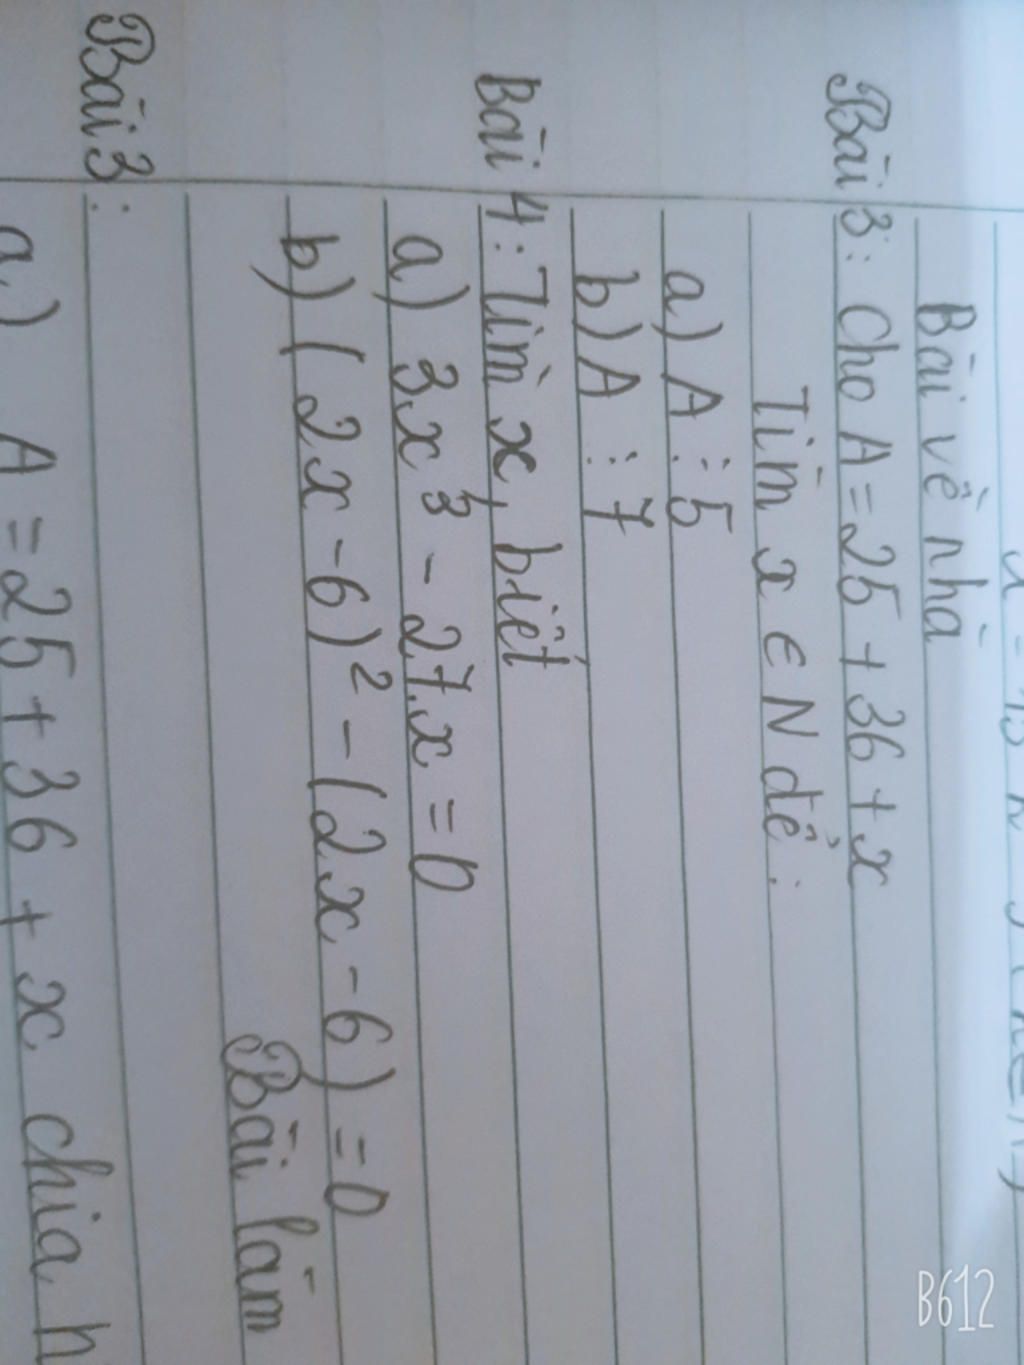 Bài về nhà
Bài 3: Cho A = 25 + 36 + x
Tìm x ∈ N để:
a) A ⋮ 5
b) A ⋮ 7
Bài 4: Tìm x, biết
a) 3x³ - 27.x = 0
b) (2x - 6)² - (2x - 6) = 0
Bài làm
Bài 3:
a) A = 25 + 36 + x chia h
B612